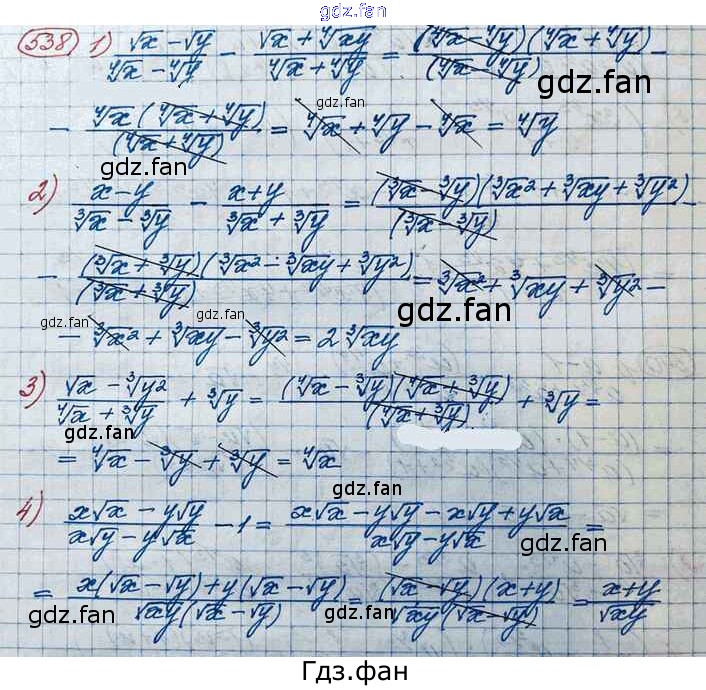 gdz.fan
538) 1) (√x − √y)/(⁴√x − ⁴√y) − (√x + ⁴√xy)/(⁴√x + ⁴√y) = (⁴√x − ⁴√y)(⁴√x + ⁴√y)/(⁴√x − ⁴√y) −
gdz.fan
− ⁴√x(⁴√x + ⁴√y)/(⁴√x + ⁴√y) = ⁴√x + ⁴√y − ⁴√x = ⁴√y
gdz.fan gdz.fan gdz.fan
2) (x − y)/(³√x − ³√y) − (x + y)/(³√x + ³√y) = (³√x − ³√y)(³√x² + ³√xy + ³√y²)/(³√x − ³√y) −
− (³√x + ³√y)(³√x² − ³√xy + ³√y²)/(³√x + ³√y) = ³√x² + ³√xy + ³√y² −
gdz.fan gdz.fan gdz.fan
− ³√x² + ³√xy − ³√y² = 2 ³√xy
3) (√x − ³√y²)/(⁴√x + ³√y) + ³√y = (⁴√x − ³√y)(⁴√x + ³√y)/(⁴√x + ³√y) + ³√y =
gdz.fan
= ⁴√x − ³√y + ³√y = ⁴√x
gdz.fan
4) (x√x − y√y)/(x√y − y√x) − 1 = (x√x − y√y − x√y + y√x)/(x√y − y√x) =
gdz.fan
= (x(√x − √y) + y(√x − √y))/(√xy(√x − √y)) = (√x − √y)(x + y)/(√xy(√x − √y)) = (x + y)/√xy
gdz.fan gdz.fan gdz.fan
Гдз.фан